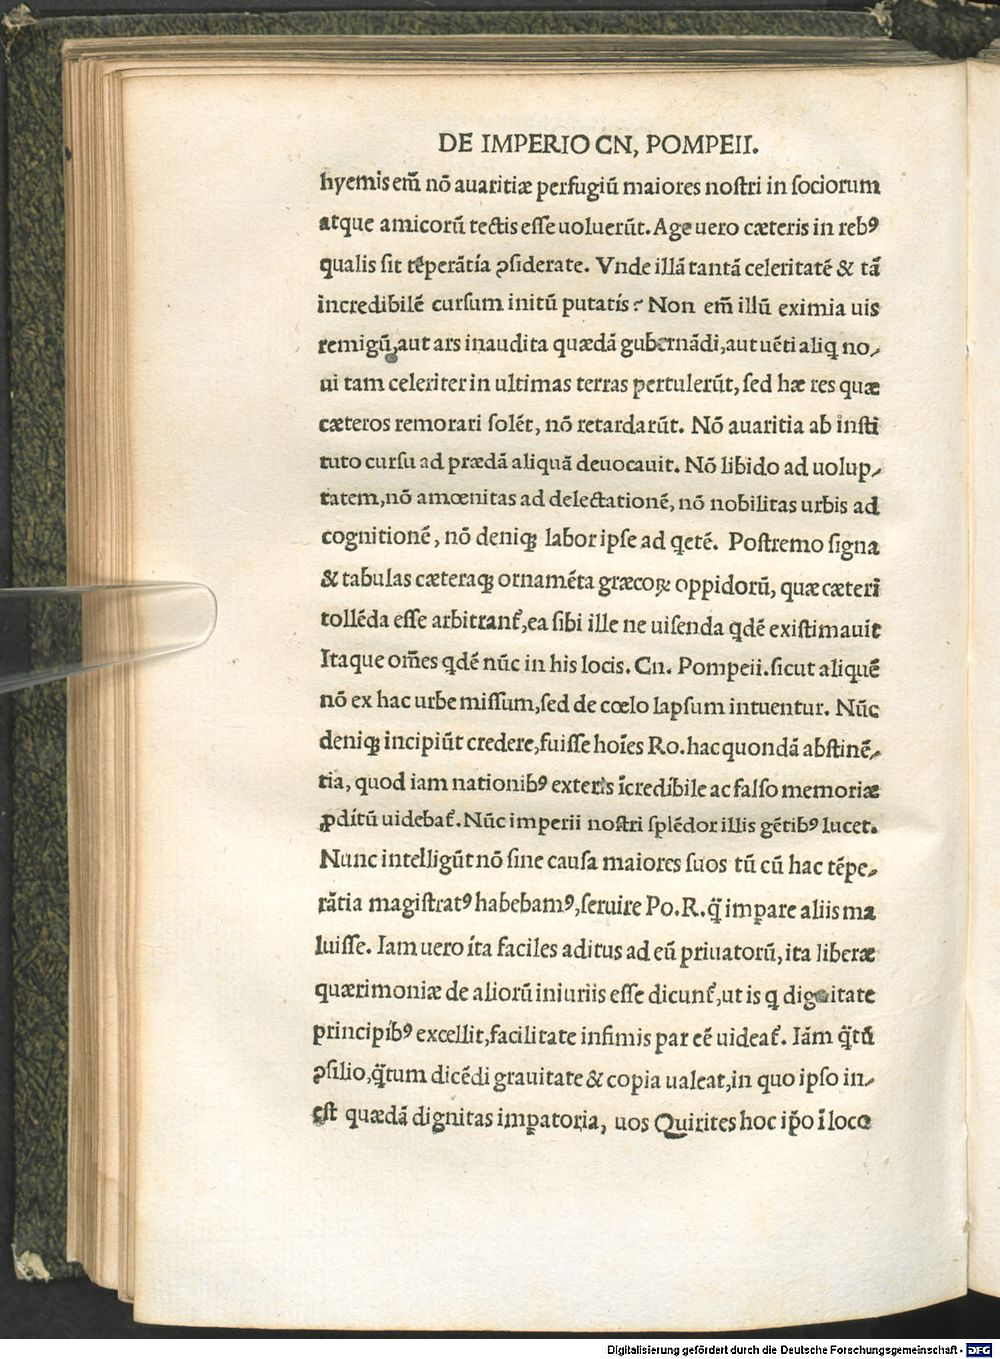 DE IMPERIO CN, POMPEII.
hyemis em̃ nõ auaritiæ perfugiũ maiores noſtri in ſociorum
atque amicorũ tectis eſſe uoluerũt. Age uero cæteris in rebꝰ
qualis ſit tẽperãtía ꝯſiderate. Vnde illã tantã celeritatẽ & tã
incredibilẽ curſum initũ putatis? Non em̃ illũ eximia uis
remigũ, aut ars inaudita quædã gubernãdi, aut uẽti aliq no⸗
ui tam celeriter in ultimas terras pertulerũt, ſed hæ res quæ
cæteros remorari ſolẽt, nõ retardarũt. Nõ auaritia ab inſti
tuto curſu ad prædã aliquã deuocauit. Nõ libido ad uolup⸗
tatem, nõ amœnitas ad delectationẽ, nõ nobilitas urbis ad
cognitionẽ, nõ deniqꝫ labor ipſe ad qetẽ. Poſtremo ſigna
& tabulas cæteraqꝫ ornamẽta græcoꝝ oppidorũ, quæ cæteri
tollẽda eſſe arbitrant᷑, ea ſibi ille ne uiſenda qdẽ exiſtimauit
Itaque om̃es qdẽ nũc in his locis. Cn. Pompeii. ſicut aliquẽ
nõ ex hac urbe miſſum, ſed de cœlo lapſum intuentur. Nũc
deniqꝫ incipiũt credere, fuiſſe hoĩes Ro. hac quondã abſtinẽ⸗
tia, quod iam nationibꝰ exteris ĩcredíbile ac falſo memoriæ
ꝓdítũ uidebat᷑. Nũc imperii noſtri ſplẽdor illis gẽtibꝰ lucet.
Nunc intelligũt nõ ſine cauſa maiores ſuos tũ cũ hac tẽpe⸗
rãtia magiſtratꝰ habebamꝰ, ſeruire Po. R. q̃ imꝑare aliis ma
luiſſe. Iam uero íta faciles aditus ad eũ priuatorũ, ita liberæ
quærimoniæ de aliorũ iniuriis eſſe dicunt᷑, ut is q dignitate
principibꝰ excellit, facilitate infimis par eẽ uideat᷑. Iám q̃tũ
ꝯſilio, q̃tum dicẽdi grauitate & copia ualeat, in quo ipſo in⸗
eſt quædã dignitas imꝑatoria, uos Quirites hoc ip̃o ĩ loco
Digitalisierung gefördert durch die Deutsche Forschungsgemeinschaft - DFG